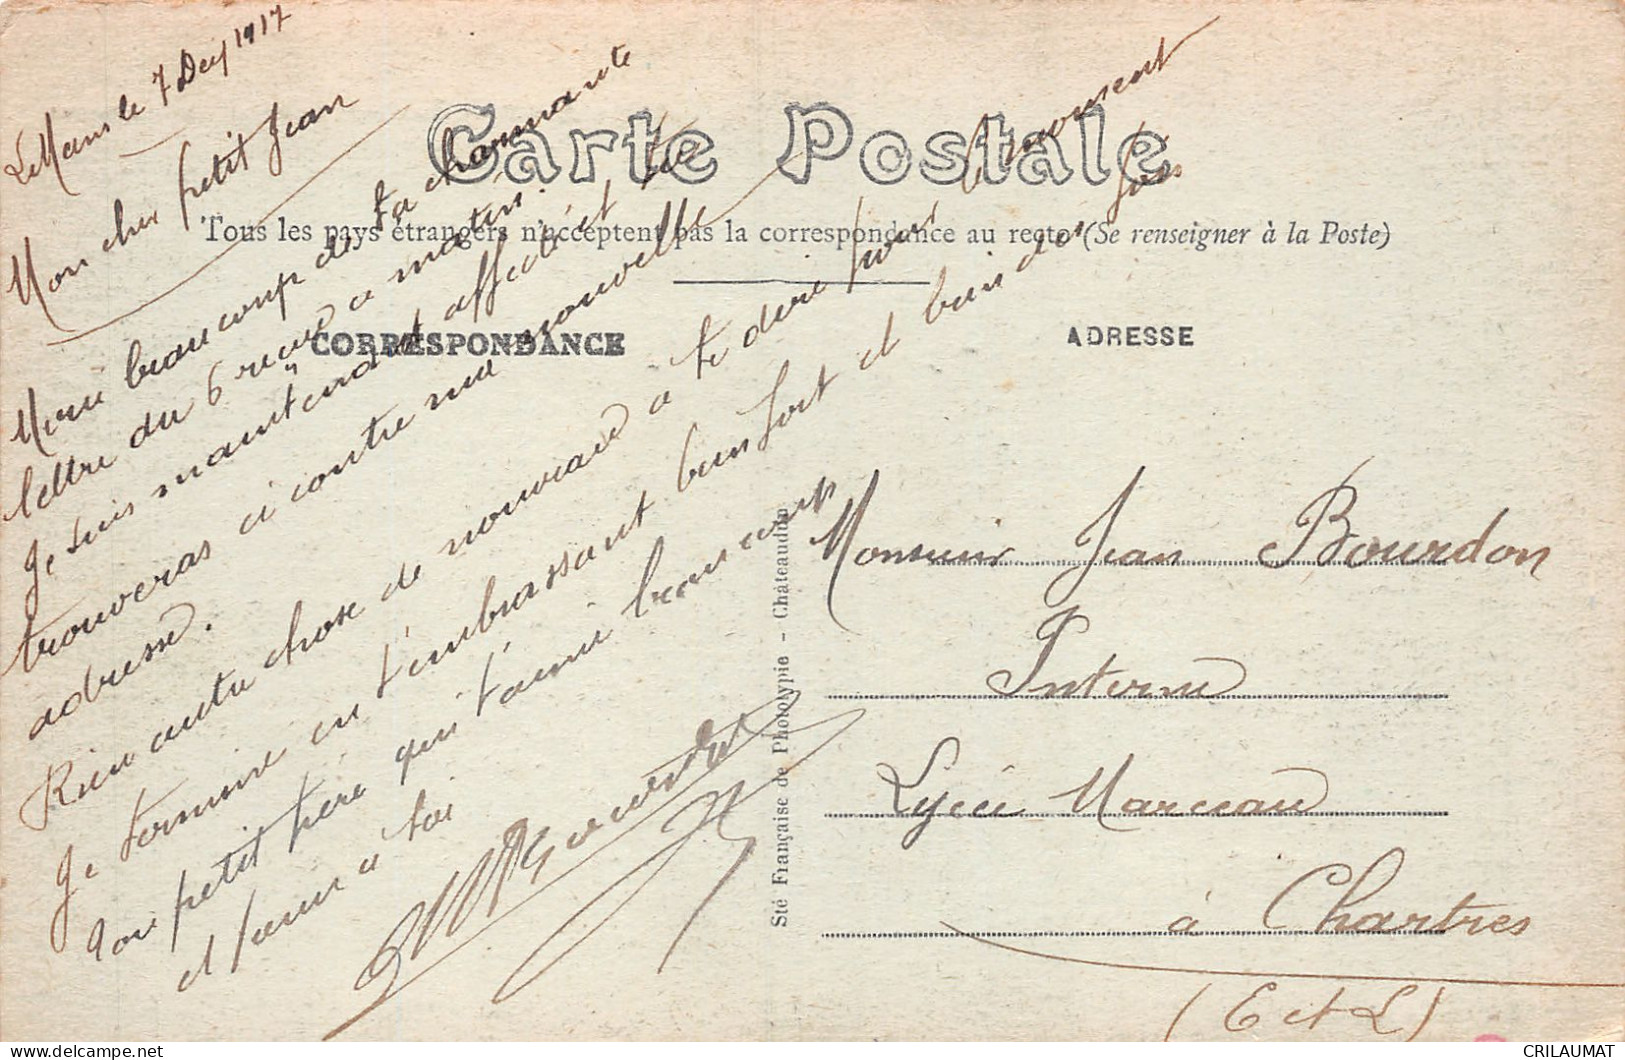 Le Mans le 7 Dec 1917
Mon cher petit Jean
Merci beaucoup de ta charmante
lettre du 6 reçue ce matin.
Je suis maintenant affecté et tu
trouveras ci contre ma nouvelle
adresse.
Rien autre chose de nouveau à te dire pour le moment
Je termine en t'embrassant bien fort et bien des fois
Ton petit père qui t'aime beaucoup
et pense à toi
Bourdon
Carte Postale
Tous les pays étrangers n'acceptent pas la correspondance au recto (Se renseigner à la Poste)
CORRESPONDANCE
ADRESSE
Sté Française de Phototypie - Châteaudun
Monsieur Jean Bourdon
Interne
Lycée Marceau
à Chartres
(E et L)
CRILAUMAT